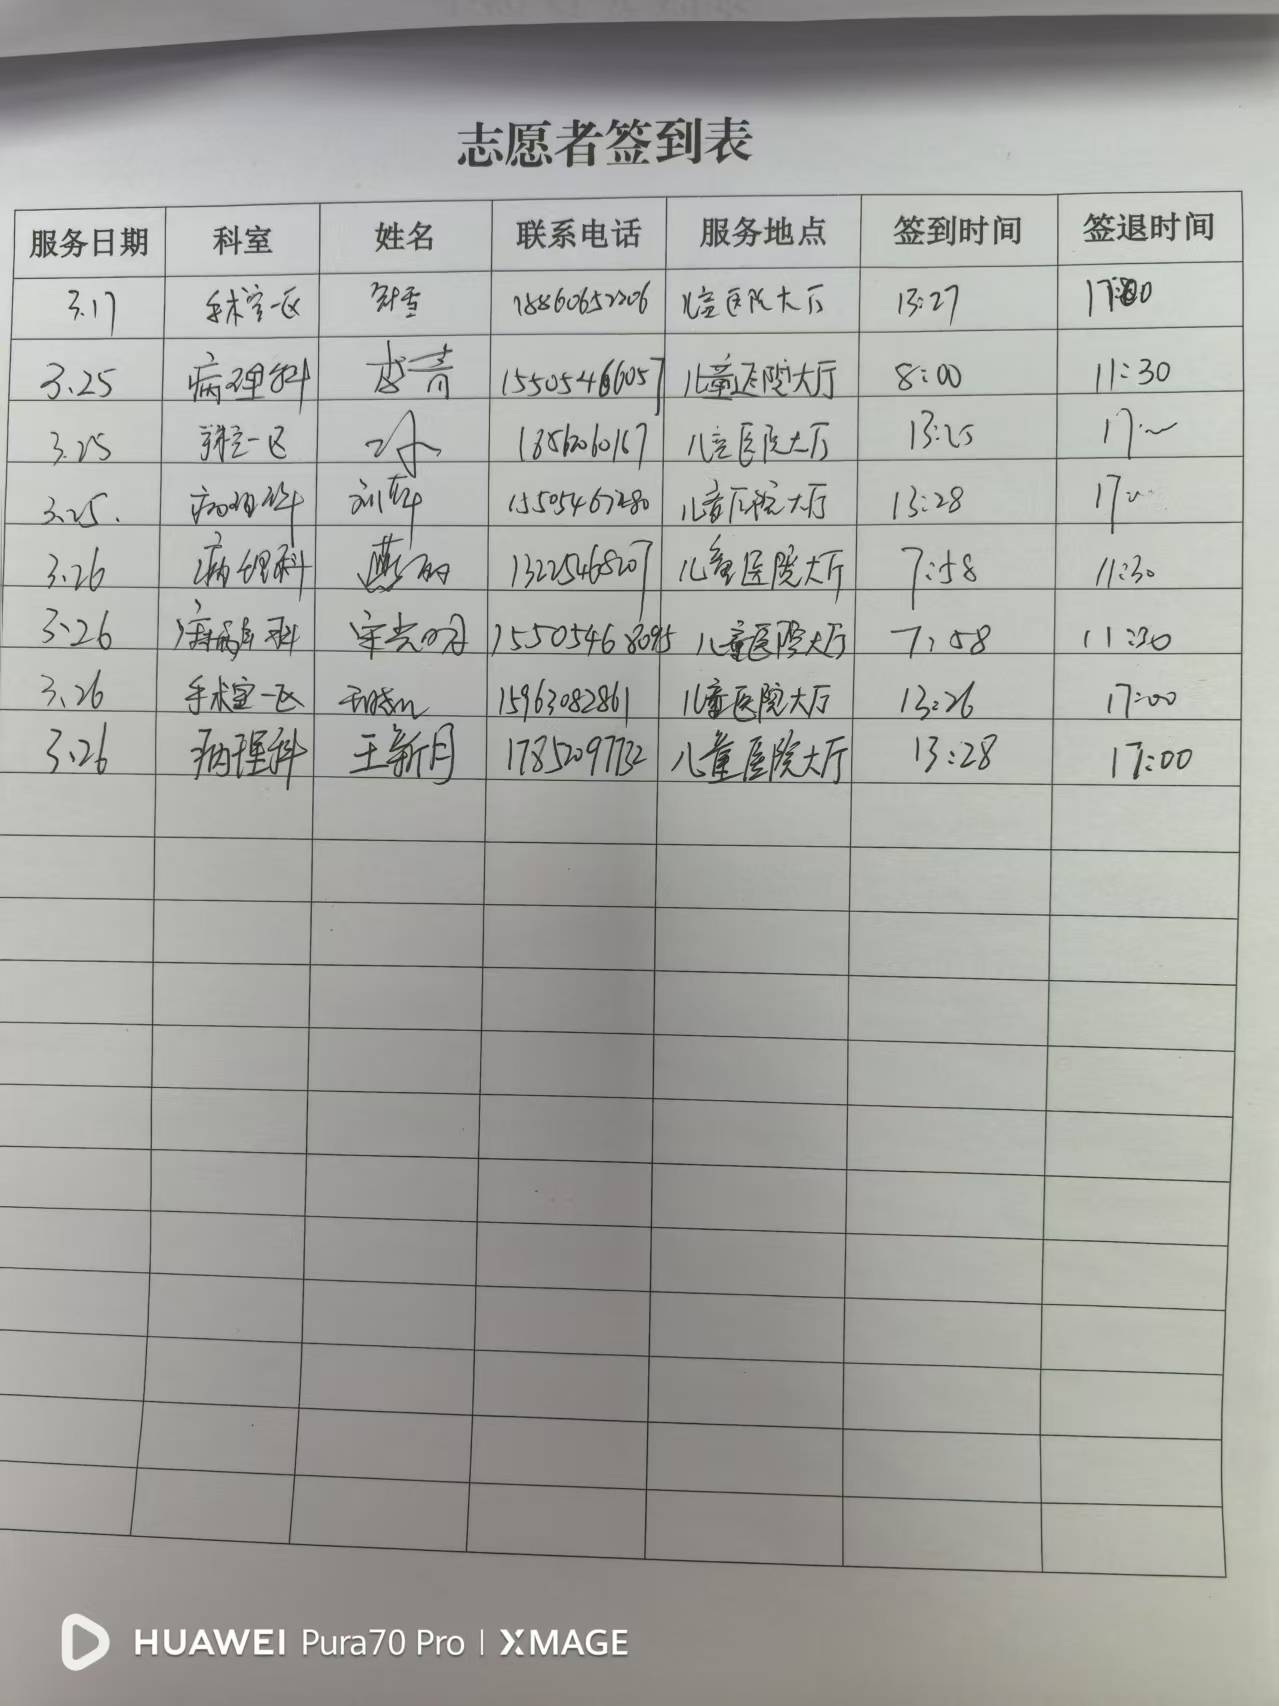 志愿者签到表
服务日期 科室 姓名 联系电话 服务地点 签到时间 签退时间
3.17 手术室一区 18860652206 儿童医院大厅 13:27 17:00
3.25 病理科 李青 15505466057 儿童医院大厅 8:00 11:30
3.25 手术室一区 儿童医院大厅 13:25
3.25. 病理科 15505467280 儿童医院大厅 13:28
3.26 病理科 燕丽 13225468207 儿童医院大厅 7:58 11:30
3.26 科 宋光明 15505468095 儿童医院大厅 7:58 11:30
3.26 手术室一区 15963082861 儿童医院大厅 13:26 17:00
3.26 病理科 王新月 17852097732 儿童医院大厅 13:28 17:00
HUAWEI Pura70 Pro | XMAGE